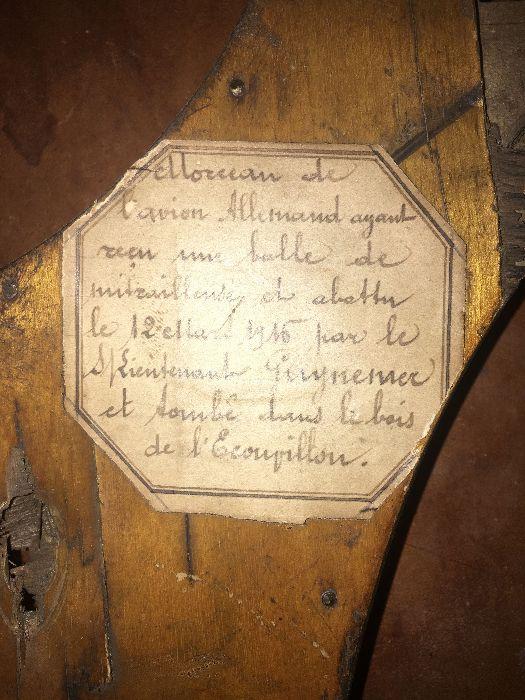 Morceau de
l'avion Allemand ayant
reçu une balle de
mitrailleuse, et abattu
le 12 Mars 1916 par le
S/Lieutenant Guynemer
et tombé dans le bois
de l'Ecoupillon.